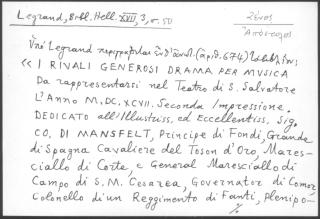 Legrand, Bibl. Hell. XVII, 3, σ. 50
Ζένος
Ἀπόστολος
Ὑπὸ Legrand περιγράφεται (ἀριθ. 674)
« I RIVALI GENEROSI DRAMA PER MUSICA
Da rappresentarsi nel Teatro di S. Salvatore
L'Anno M.DC.XCVII. Seconda Impressione.
DEDICATO all'Illustriss, ed Eccellentiss, Sig.
CO. DI MANSFELT, Principe di Fondi, Grande
di Spagna Cavaliere del Toson d'Oro, Mares-
ciallo di Corte, e General Maresciallo di
Campo di S. M. Cesarea, Governator di Comor,
Colonello di un Reggimento di Fanti, Plenipo-
//